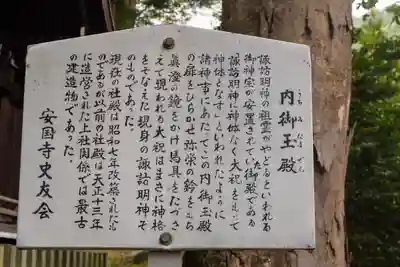 内御玉殿
うち み たま でん
諏訪明神の祖霊がやどるといわれる
御神宝が安置されていた御殿である
「諏訪明神に神体なく大祝をもって
神体となす」といわれたように
諸神事にあたってこの内御玉殿
の扉をひらかせ弥栄の鈴をもち
真澄の鏡をかけ馬具をたづさ
えて現われる大祝はまさに神格
をそなえた現身の諏訪明神そ
のものであった。
現在の社殿は昭和七年改築されたも
のであるが以前の社殿は天正十三年
に造営された上社関係では最古
の建造物であった。
安国寺史友会